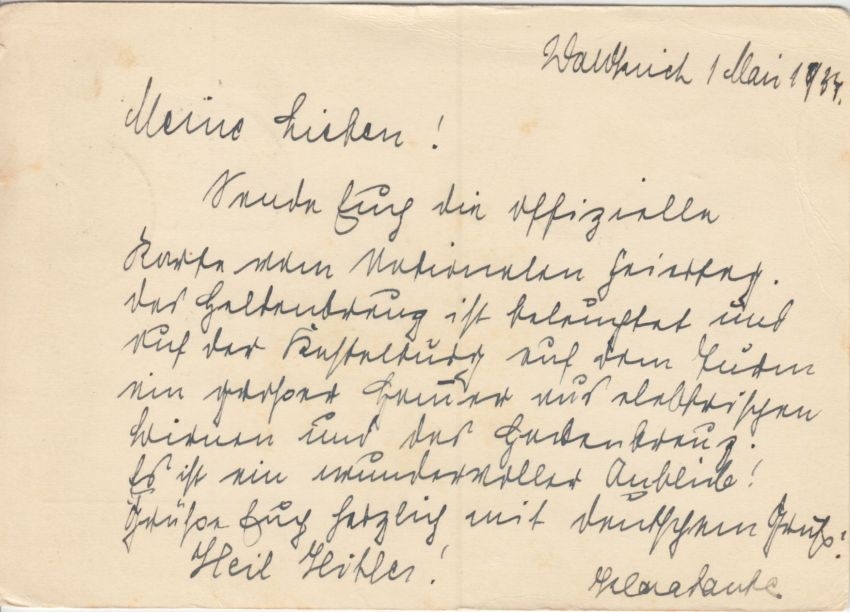 Waldkirch 1 Mai 1934.
Meine Lieben!
Sende Euch die offizielle
Karte vom Nationalen Feiertag.
Das Heldenkreuz ist beleuchtet und
auf der Kastelburg auf dem Turm
ein großer Hammer aus elektrischen
Birnen und das Hackenkreuz.
Es ist ein wundervoller Anblick!
Grüße Euch herzlich mit deutschem Gruß:
Heil Hitler!